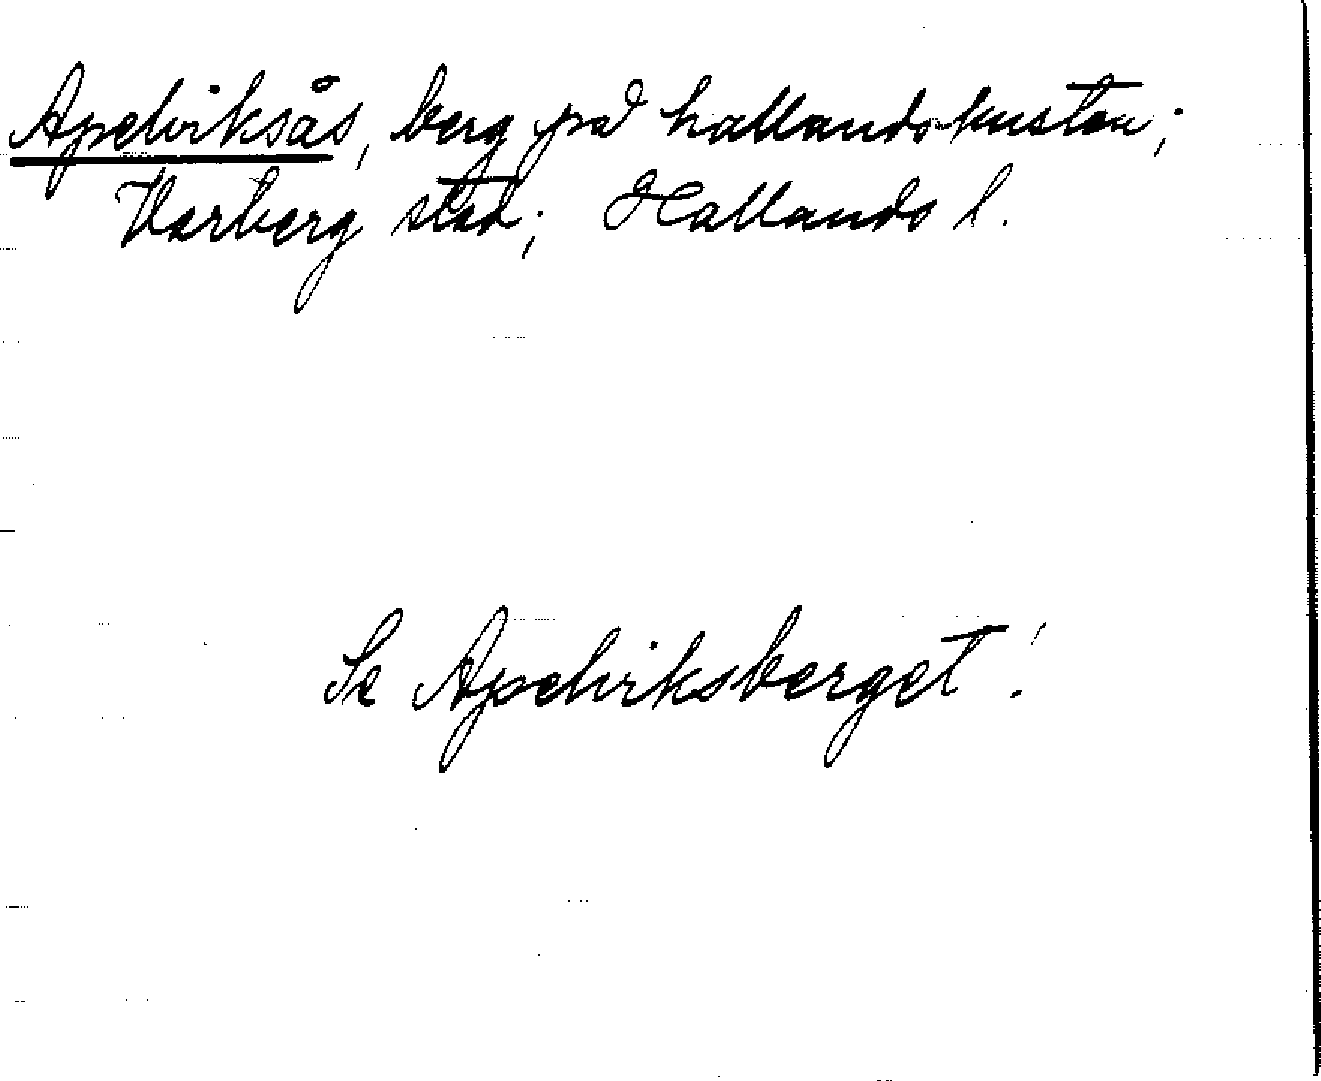 Apelviksås, berg på hallandskusten;
Varberg stad; Hallands l.
Se Apelviksberget!